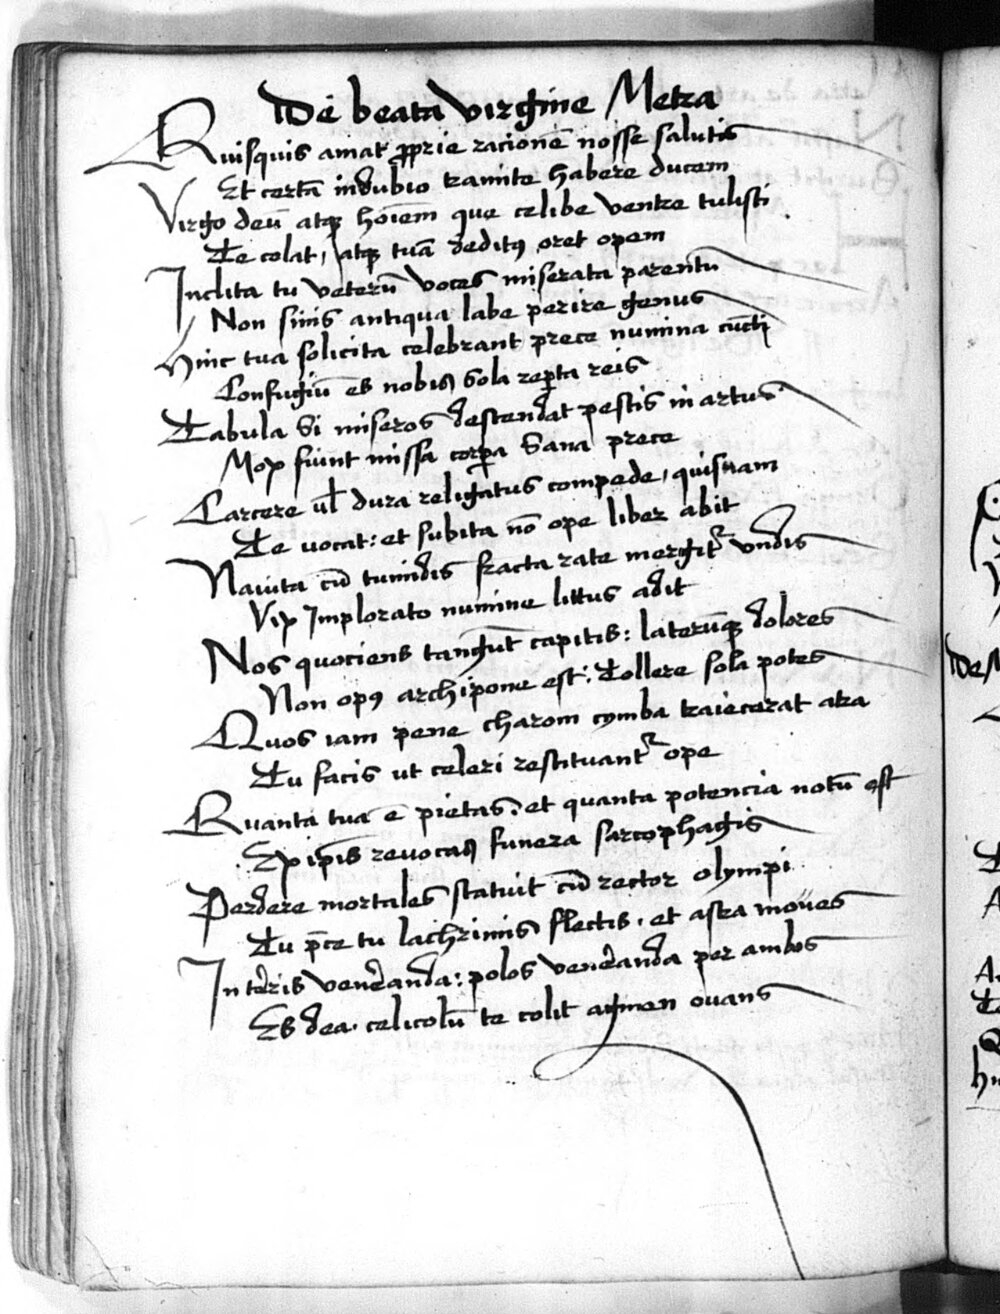 De beata virgine Metra
Quisquis amat ꝓprie racionē nosse salutis
Et certā indubio tramite habere ducem
Virgo deū atqꝫ hoīem que celibe ventre tulisti
Te colat, atqꝫ tuā reditꝰ oret opem
Inclita tu veterū voces miserata parentū
Non sinis antiqua labe perire genus
Hinc tua solicita celebrant prece numina cūcti
Confugiū es nobis sola reꝑta reis
Tabula si miseros descendat pestis in artus
Mox fiunt missa corꝑa sana prece
Carcere ul̄ dura religatus compede, quisnam
Te vocat: et subita nō ope liber abit
Navita cū tumidis fracta rate mergitᷣ vndis
Vix Implorato numine littus adit
Nos quociens tangūt capitis: laterūqꝫ dolores
Non opꝰ archipone est: Tollere sola potes
Quos iam pene charom cymba traiecerat atra
Tu facis ut celeri restituantᷣ ope
Quanta tua ē pietas: et quanta potencia notū est
Ex ip̄is revocas funera sarcophagis
Perdere mortales statuit cū rector olympi
Tu p̄ce tu lachrimis flectis, et astra moves
In tēris veneranda: polos veneranda per ambos
Es dea. celicolū te colit agmen ovans
De